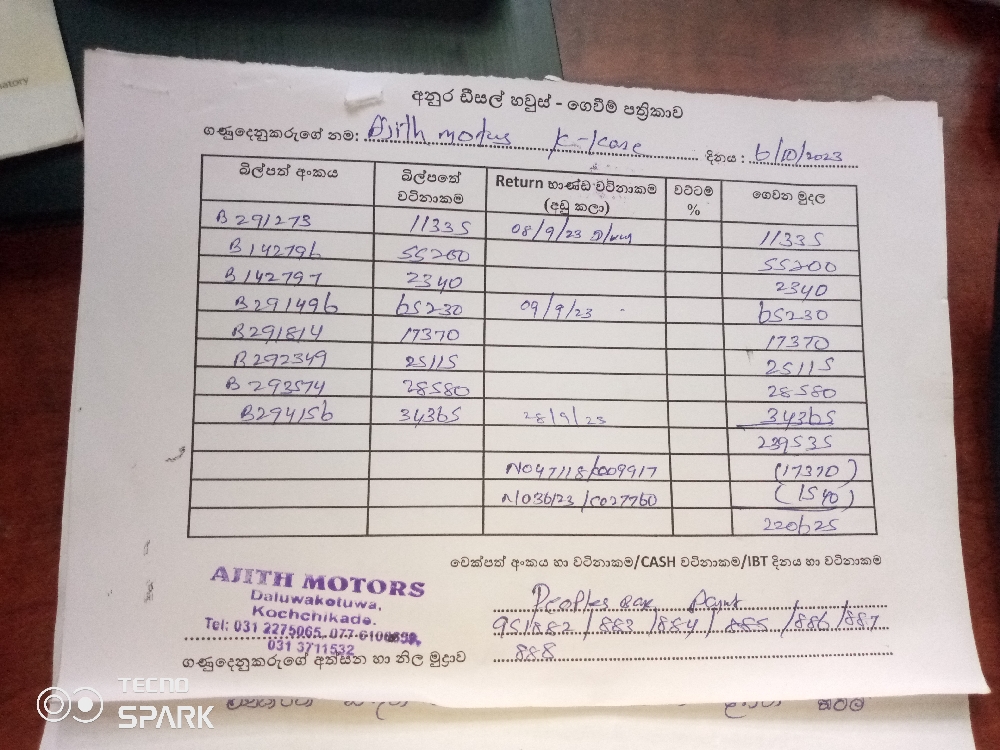 atory
අනුර ඩීසල් හවුස් - ගෙවීම් පත්‍රිකාව
ගණුදෙනුකරුගේ නම: Ajith motors K-Kade දිනය : 6/10/2023
බිල්පත් අංකය බිල්පතේ වටිනාකම Return භාණ්ඩ වටිනාකම (අඩු කලා) වට්ටම % ගෙවන මුදල
B 291273 11335 08/9/23 11335
B 142796 55200 55200
B 142797 2340 2340
B 291496 65230 09/9/23 - 65230
B 291814 17370 17370
B 292349 25115 25115
B 293574 28580 28580
B294156 34365 28/9/23 34365
239535
N047118/C009917 (17370)
N1036123/C027760 (1540)
220625
චෙක්පත් අංකය හා වටිනාකම/CASH වටිනාකම/IBT දිනය හා වටිනාකම
AJITH MOTORS
Daluwakotuwa,
Kochchikade.
Tel: 031 2275065, 077-6106
031 3711532
Peoples
951882 / 883 / 884 / 885 / 886 / 887
888
ගණුදෙනුකරුගේ අත්සන හා නිල මුද්‍රාව
TECNO
SPARK